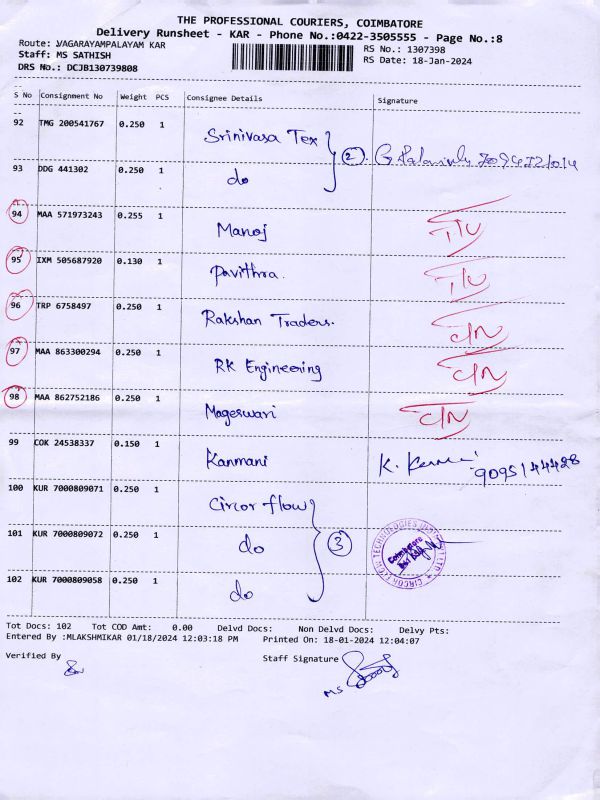 THE PROFESSIONAL COURIERS, COIMBATORE
Delivery Runsheet - KAR - Phone No.:0422-3505555 - Page No.:8
Route: YAGARAYAMPALAYAM KAR
RS No.: 1307398
Staff: MS SATHISH
RS Date: 18-Jan-2024
DRS No.: DCJB130739808
S No Consignment No Weight PCS Consignee Details Signature
92 TMG 200541767 0.250 1 Srinivasa Tex (2)
93 DDG 441302 0.250 1 do
94 MAA 571973243 0.255 1 Manoj
95 IXM 505687920 0.130 1 Pavithra.
96 TRP 6758497 0.250 1 Rakshan Traders. C/N
97 MAA 863300294 0.250 1 RK Engineering C/N
98 MAA 862752186 0.250 1 Mageswari C/N
99 COK 24538337 0.150 1 Kanmani K. 9095144428
100 KUR 7000809071 0.250 1 Circor flow
101 KUR 7000809072 0.250 1 do (3)
102 KUR 7000809058 0.250 1 do
Tot Docs: 102 Tot COD Amt: 0.00 Delvd Docs: Non Delvd Docs: Delvy Pts:
Entered By :MLAKSHMIKAR 01/18/2024 12:03:18 PM Printed On: 18-01-2024 12:04:07
Verified By Staff Signature
MS